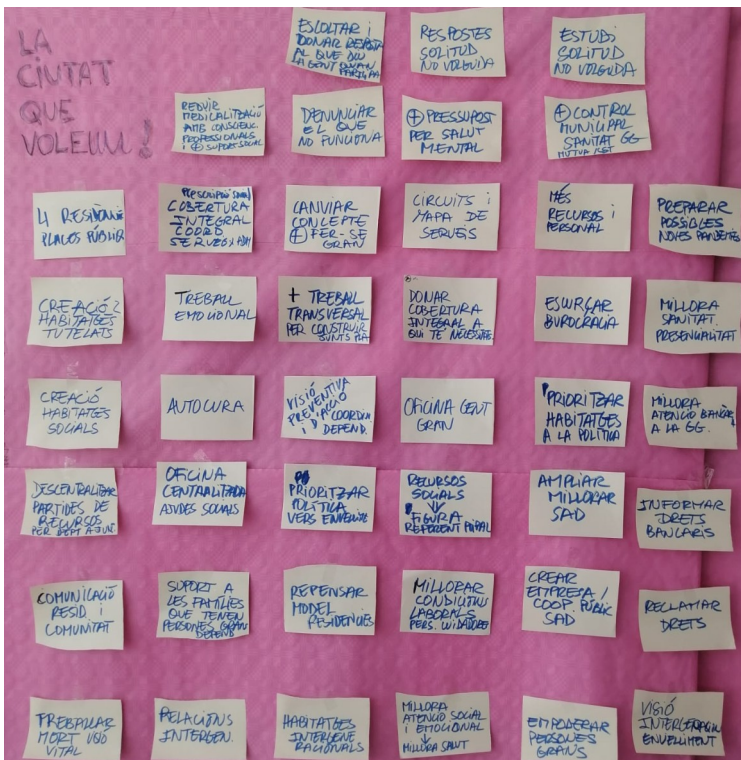 LA
CIUTAT
QUE
VOLEM!
ESCOLTAR I
DONAR RESPOSTA
AL QUE DIU
LA GENT GRAN
RESPOSTES
SOLITUD
NO VOLGUDA
ESTUDI
SOLITUD
NO VOLGUDA
REDUIR
MEDICALITZACIÓ
AMB CONSCIENC.
PROFESSIONALS
I + SUPORT SOCIAL
DENUNCIAR
EL QUE
NO FUNCIONA
+ PRESSUPOST
PER SALUT
MENTAL
+ CONTROL
MUNICIPAL
SANITAT GG
4 RESIDÈNCIES
PLACES PÚBLIQ
PRESCRIPCIÓ SOCIAL
COBERTURA
INTEGRAL
COORD
CANVIAR
CONCEPTE
+ FER-SE
GRAN
CIRCUITS I
MAPA DE
SERVEIS
MÉS
RECURSOS I
PERSONAL
PREPARAR
POSSIBLES
NOVES PANDEMIES
CREACIÓ 2
HABITATGES
TUTELATS
TREBALL
EMOCIONAL
+ TREBALL
TRANSVERSAL
PER CONSTRUIR
JUNTS
DONAR
COBERTURA
INTEGRAL A
QUI TÉ NECESSITE.
ESCURÇAR
BUROCRÀCIA
MILLORA
SANITAT.
PRESENCIALITAT
CREACIÓ
HABITATGES
SOCIALS
AUTOCURA
VISIÓ
PREVENTIVA
I D'ACCIÓ
COORDIN.
DEPEND.
OFICINA GENT
GRAN
PRIORITZAR
HABITATGES
A LA POLÍTICA
MILLORA
ATENCIÓ BANCÀR.
A LA GG.
DESCENTRALITZAR
PARTIDES DE
RECURSOS
PER DEPT AJUN.
OFICINA
CENTRALITZADA
AJUDES SOCIALS
PRIORITZAR
POLÍTICA
VERS ENVELLIM
RECURSOS
SOCIALS
↓
FIGURA
REFERENT
AMPLIAR
MILLORAR
SAD
INFORMAR
DRETS
BANCARIS
COMUNICACIÓ
RESID. I
COMUNITAT
SUPORT A
LES FAMÍLIES
QUE TENEN
PERSONES GRAN
DEPEND
REPENSAR
MODEL
RESIDENCIES
MILLORAR
CONDICIONS
LABORALS
PERS. CUIDADORE
CREAR
EMPRESA /
COOP. PÚBLIC
SAD
RECLAMAR
DRETS
TREBALLAR
MORT
VITAL
RELACIONS
INTERGEN.
HABITATGES
INTERGENE
RACIONALS
MILLORA
ATENCIÓ SOCIAL
I EMOCIONAL
↓
MILLORA SALUT
EMPODERAR
PERSONES
GRANS
VISIÓ
INTERGENERACION
ENVELLIMENT